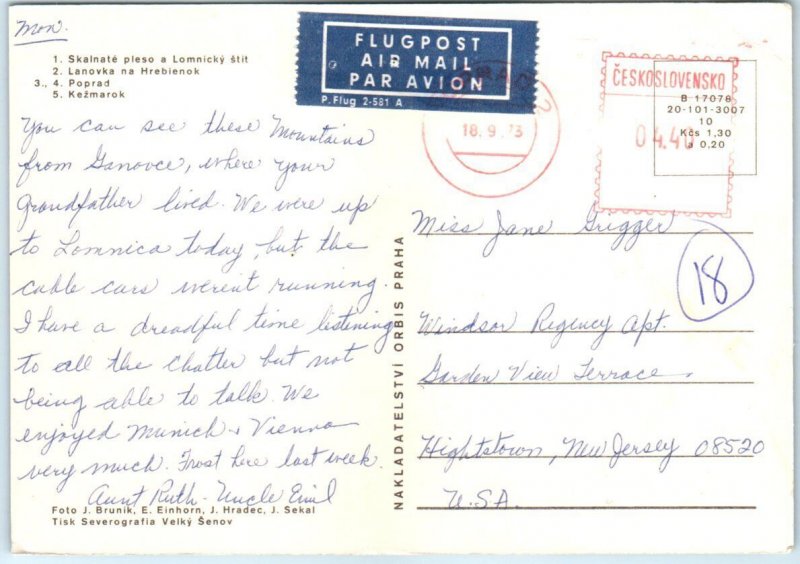 Mon.
1. Skalnaté pleso a Lomnický štít
2. Lanovka na Hrebienok
3., 4. Poprad
5. Kežmarok
FLUGPOST
AIR MAIL
PAR AVION
P. Flug 2-581 A
18.9.73
ČESKOSLOVENSKO
04.40
B 17078
20-101-3007
10
Kčs 1,30
a 0,20
You can see these Mountains
from Ganovce, where your
grandfather lived. We were up
to Lomnica today, but the
cable cars weren't running.
I have a dreadful time listening
to all the chatter but not
being able to talk. We
enjoyed Munich + Vienna
very much. Frost here last week.
Aunt Ruth - Uncle Emil
Foto J. Bruník, E. Einhorn, J. Hradec, J. Sekal
Tisk Severografia Velký Šenov
NAKLADATELSTVÍ ORBIS PRAHA
Miss Jane Grigger
18
Windsor Regency Apt.
Garden View Terrace.
Hightstown, New Jersey 08520
U.S.A.